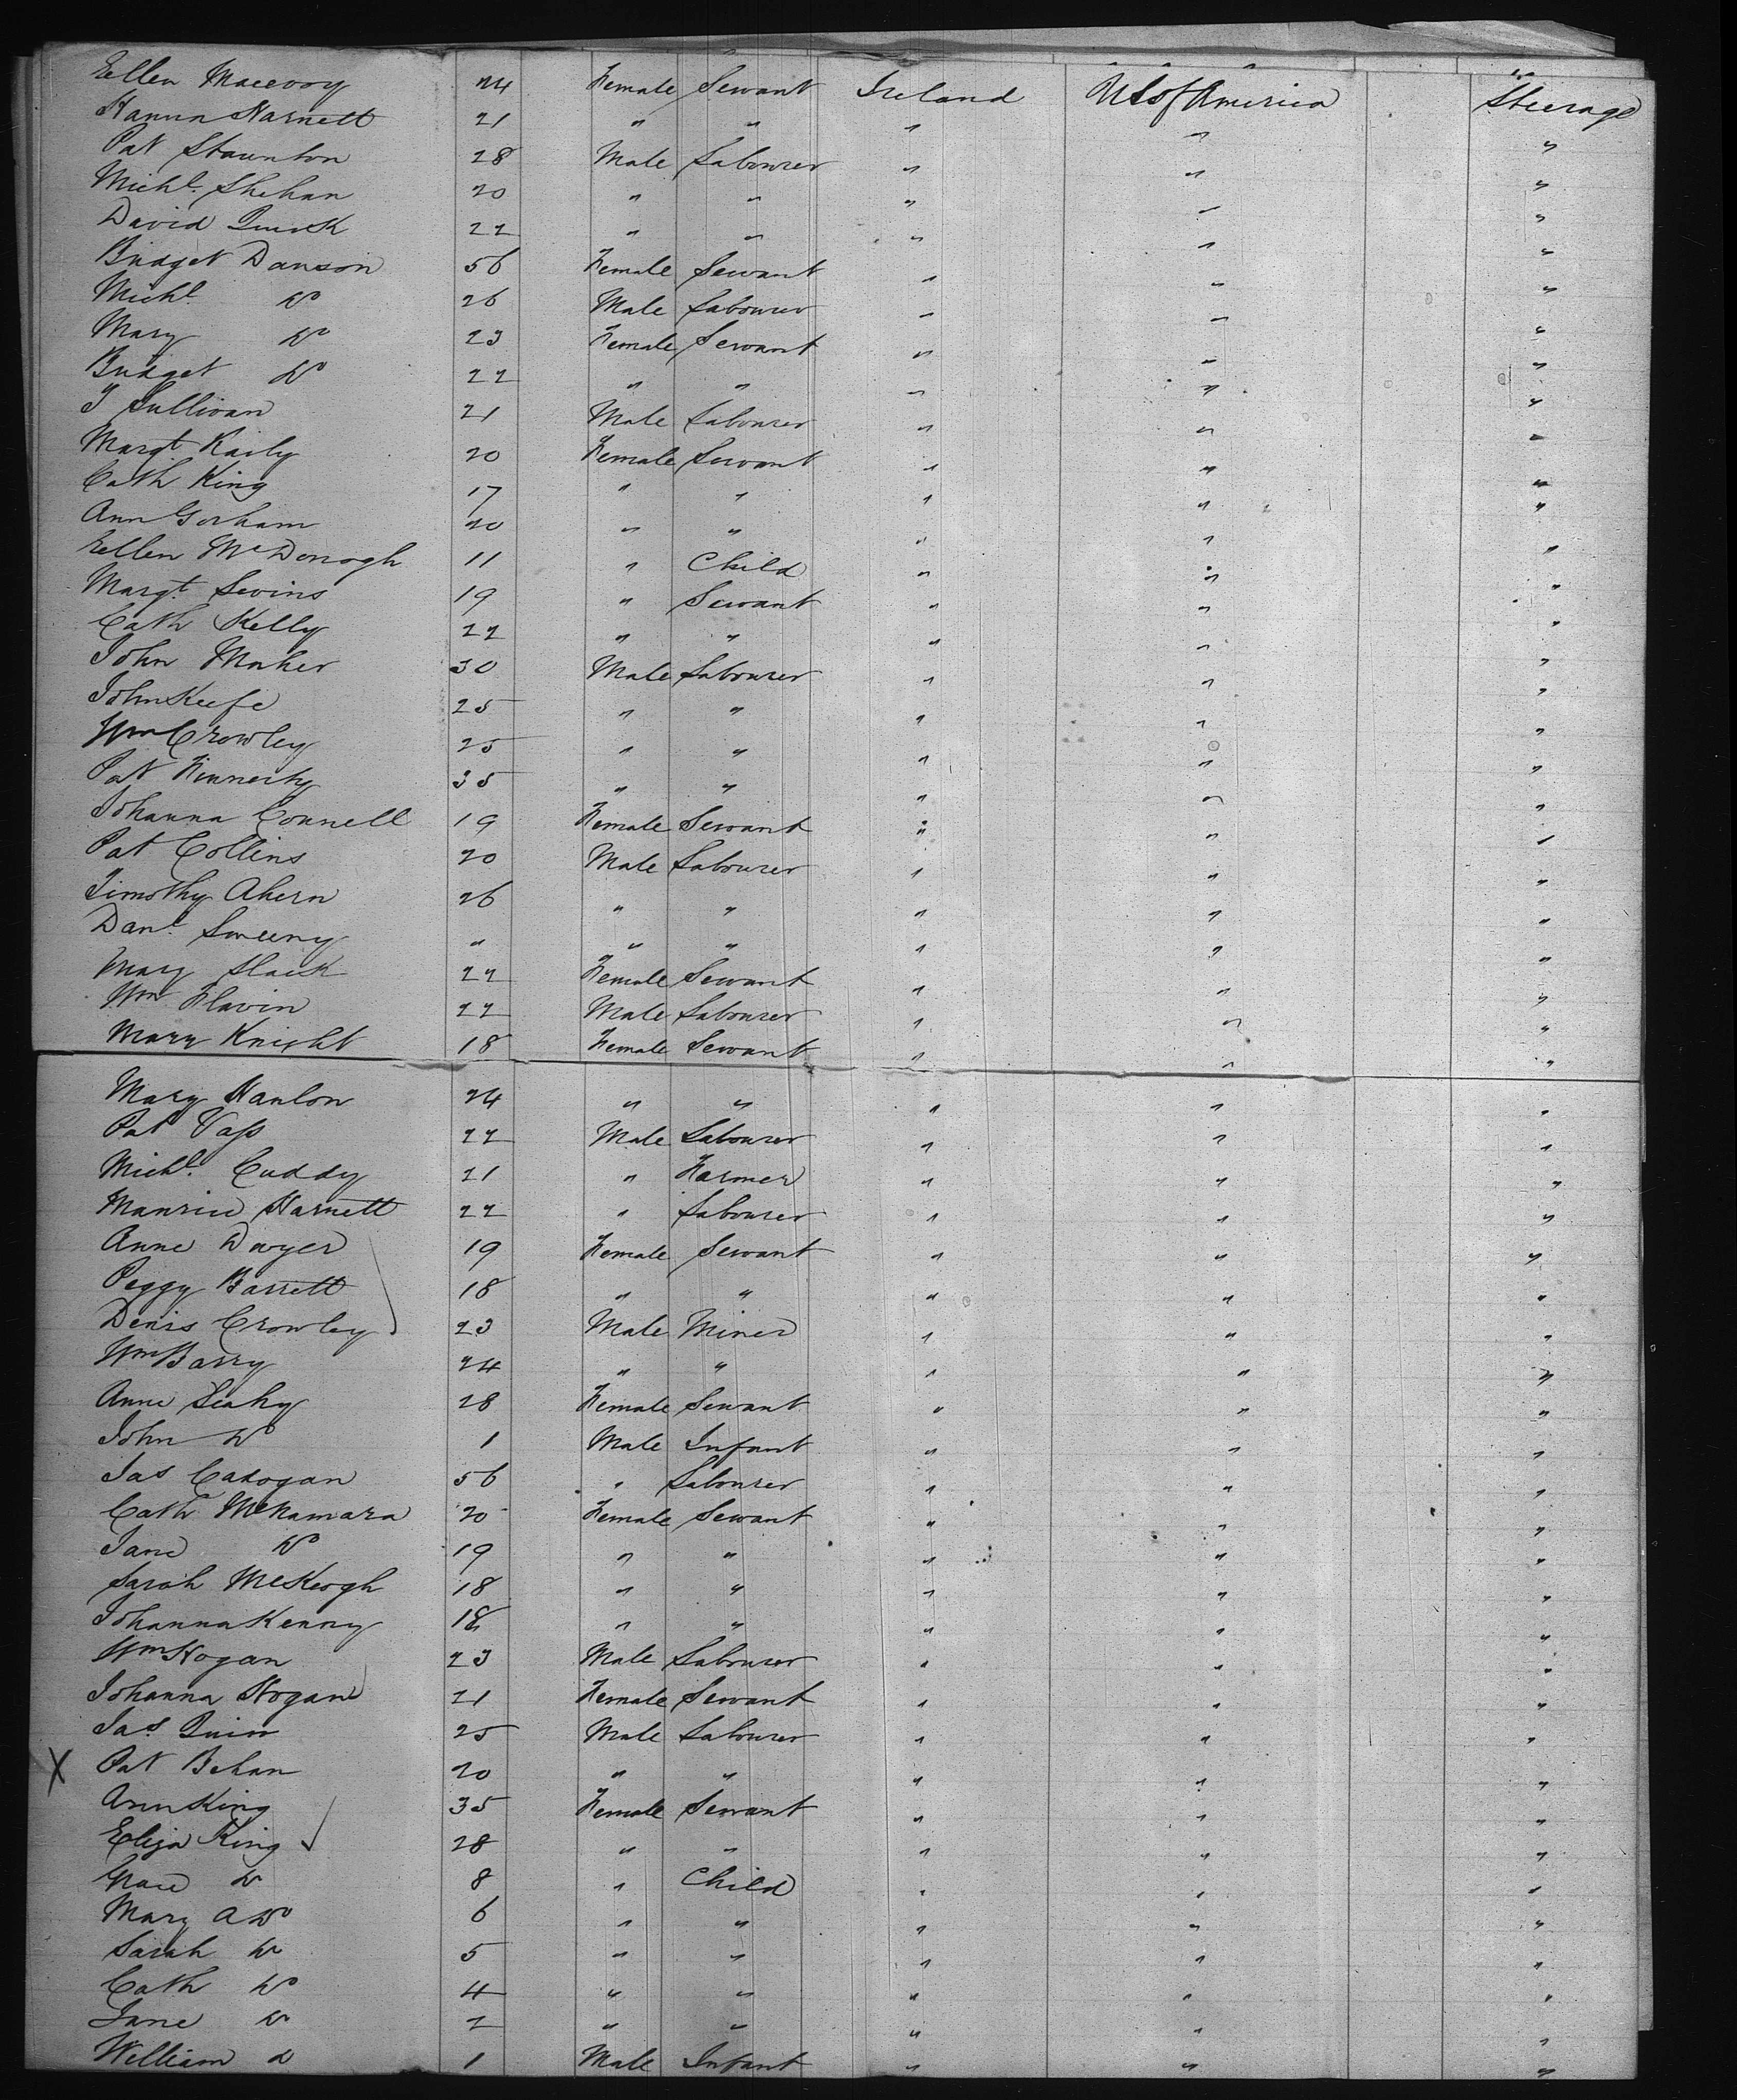 Ellen Macevoy 24 Female Servant Ireland US of America Steerage
Hanna Harnett 21 " " " " "
Pat Staunton 28 Male Labourer " " "
Michl. Shehan 20 " " " " "
David Quirk 22 " " " " "
Bridget Dawson 56 Female Servant " " "
Michl. Do 26 Male Labourer " " "
Mary Do 23 Female Servant " " "
Bridget Do 22 " " " " "
J Sullivan 21 Male Labourer " " "
Margt. Kaily 20 Female Servant " " "
Cath King 17 " " " " "
Ann Gorham 20 " " " " "
Ellen McDonogh 11 " Child " " "
Margt. Levins 19 " Servant " " "
Cath Kelly 22 " " " " "
John Maher 30 Male Labourer " " "
John Keefe 25 " " " " "
Wm Crowley 25 " " " " "
Pat Finnerty 35 " " " " "
Johanna Connell 19 Female Servant " " "
Pat Collins 20 Male Labourer " " "
Timothy Ahern 26 " " " " "
Danl. Sweeny " " " " " "
Mary Slack 22 Female Servant " " "
Wm Flavin 22 Male Labourer " " "
Mary Knight 18 Female Servant " " "
Mary Hanlon 24 " " " " "
Pat Vass 22 Male Labourer " " "
Michl. Cuddy 21 " Farmer " " "
Maurice Harnett 22 " Labourer " " "
Anne Dwyer 19 Female Servant " " "
Peggy Barrett 18 " " " " "
Denis Crowley 23 Male Miner " " "
Wm Barry 24 " " " " "
Anne Leahy 28 Female Servant " " "
John Do 1 Male Infant " " "
Jas Cadogan 56 " Labourer " " "
Cath McNamara 20 Female Servant " " "
Jane Do 19 " " " " "
Sarah McKeogh 18 " " " " "
Johanna Kenny 18 " " " " "
Wm Hogan 23 Male Labourer " " "
Johanna Hogan 21 Female Servant " " "
Jas. Quin 25 Male Labourer " " "
X Pat Behan 20 " " " " "
Ann King 35 Female Servant " " "
Eliza King 28 " " " " "
Grace Do 8 " Child " " "
Mary A Do 6 " " " " "
Sarah Do 5 " " " " "
Cath Do 4 " " " " "
Jane Do 2 " " " " "
William Do 1 Male Infant " " "